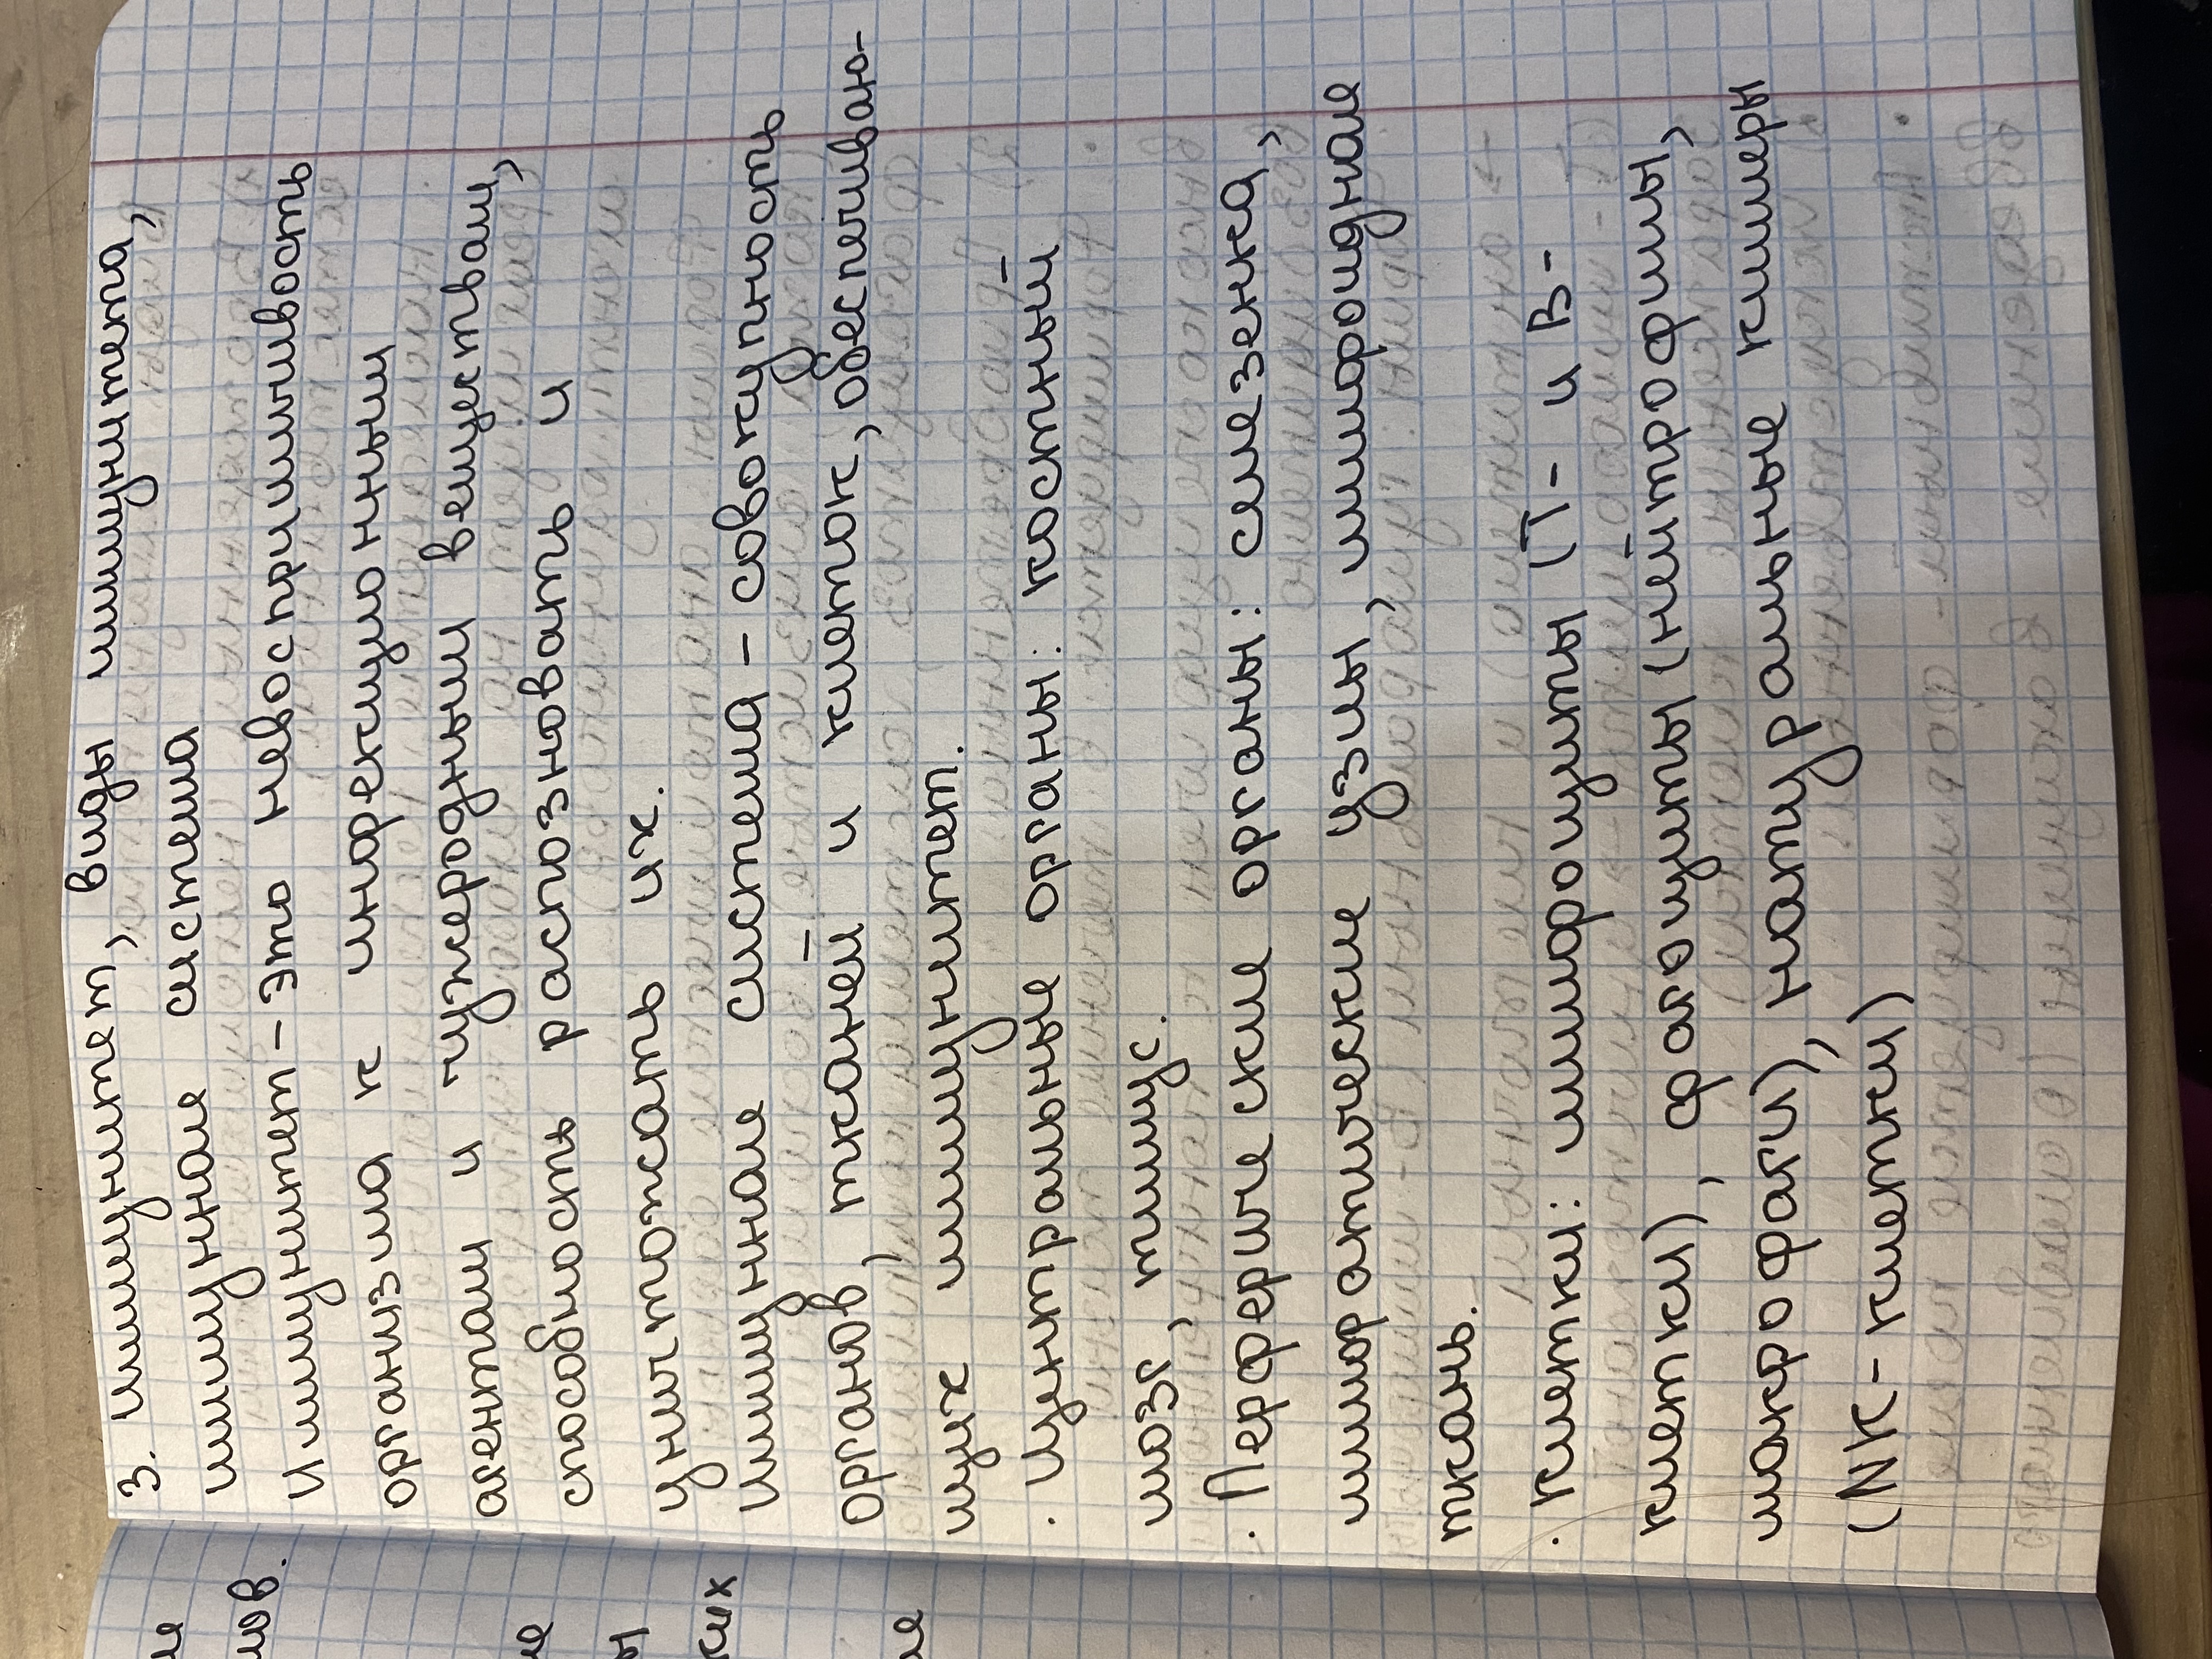 3. иммунитет, виды иммунитета,
иммунная система
Иммунитет - это невосприимчивость
организма к инфекционным
агентам и чужеродным веществам,
способность распозновать и
уничтожать их.
иммунная система - совокупность
органов, тканей и клеток, обеспечиваю-
щих иммунитет.
· Центральные органы: костный
мозг, тимус.
· Периферические органы: селезенка,
лимфатические узлы, лимфоидная
ткань.
· клетки: лимфоциты (Т- и В-
клетки), фагоциты (нейтрофилы,
макрофаги), натуральные киллеры
(NK - клетки)